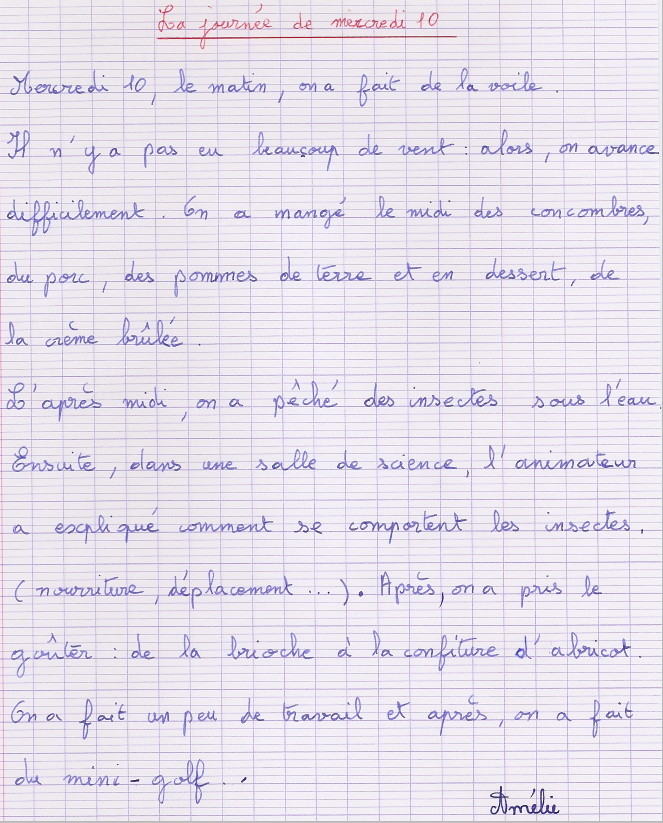 La journée de mercredi 10
Mercredi 10, le matin, on a fait de la voile.
Il n'y a pas eu beaucoup de vent : alors, on avance
difficilement. On a mangé le midi des concombres,
du porc, des pommes de terre et en dessert, de
la crème brûlée.
L'après midi, on a pêché des insectes sous l'eau.
Ensuite, dans une salle de science, l'animateur
a expliqué comment se comportent les insectes.
(nourriture, déplacement ...). Après, on a pris le
goûter : de la brioche à la confiture d'abricot.
On a fait un peu de travail et après, on a fait
du mini-golf...
Amélie